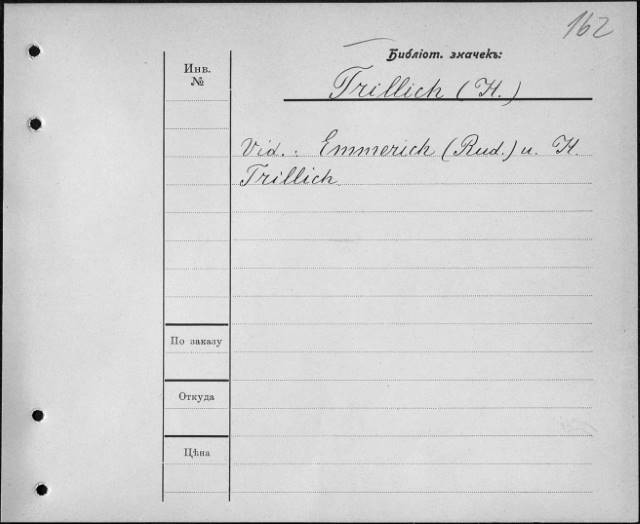 162
Библіот. значекъ:
Инв.
№
Trillich (H.)
Vid.: Emmerich (Rud.) u. H.
Trillich
По заказу
Откуда
Цѣна